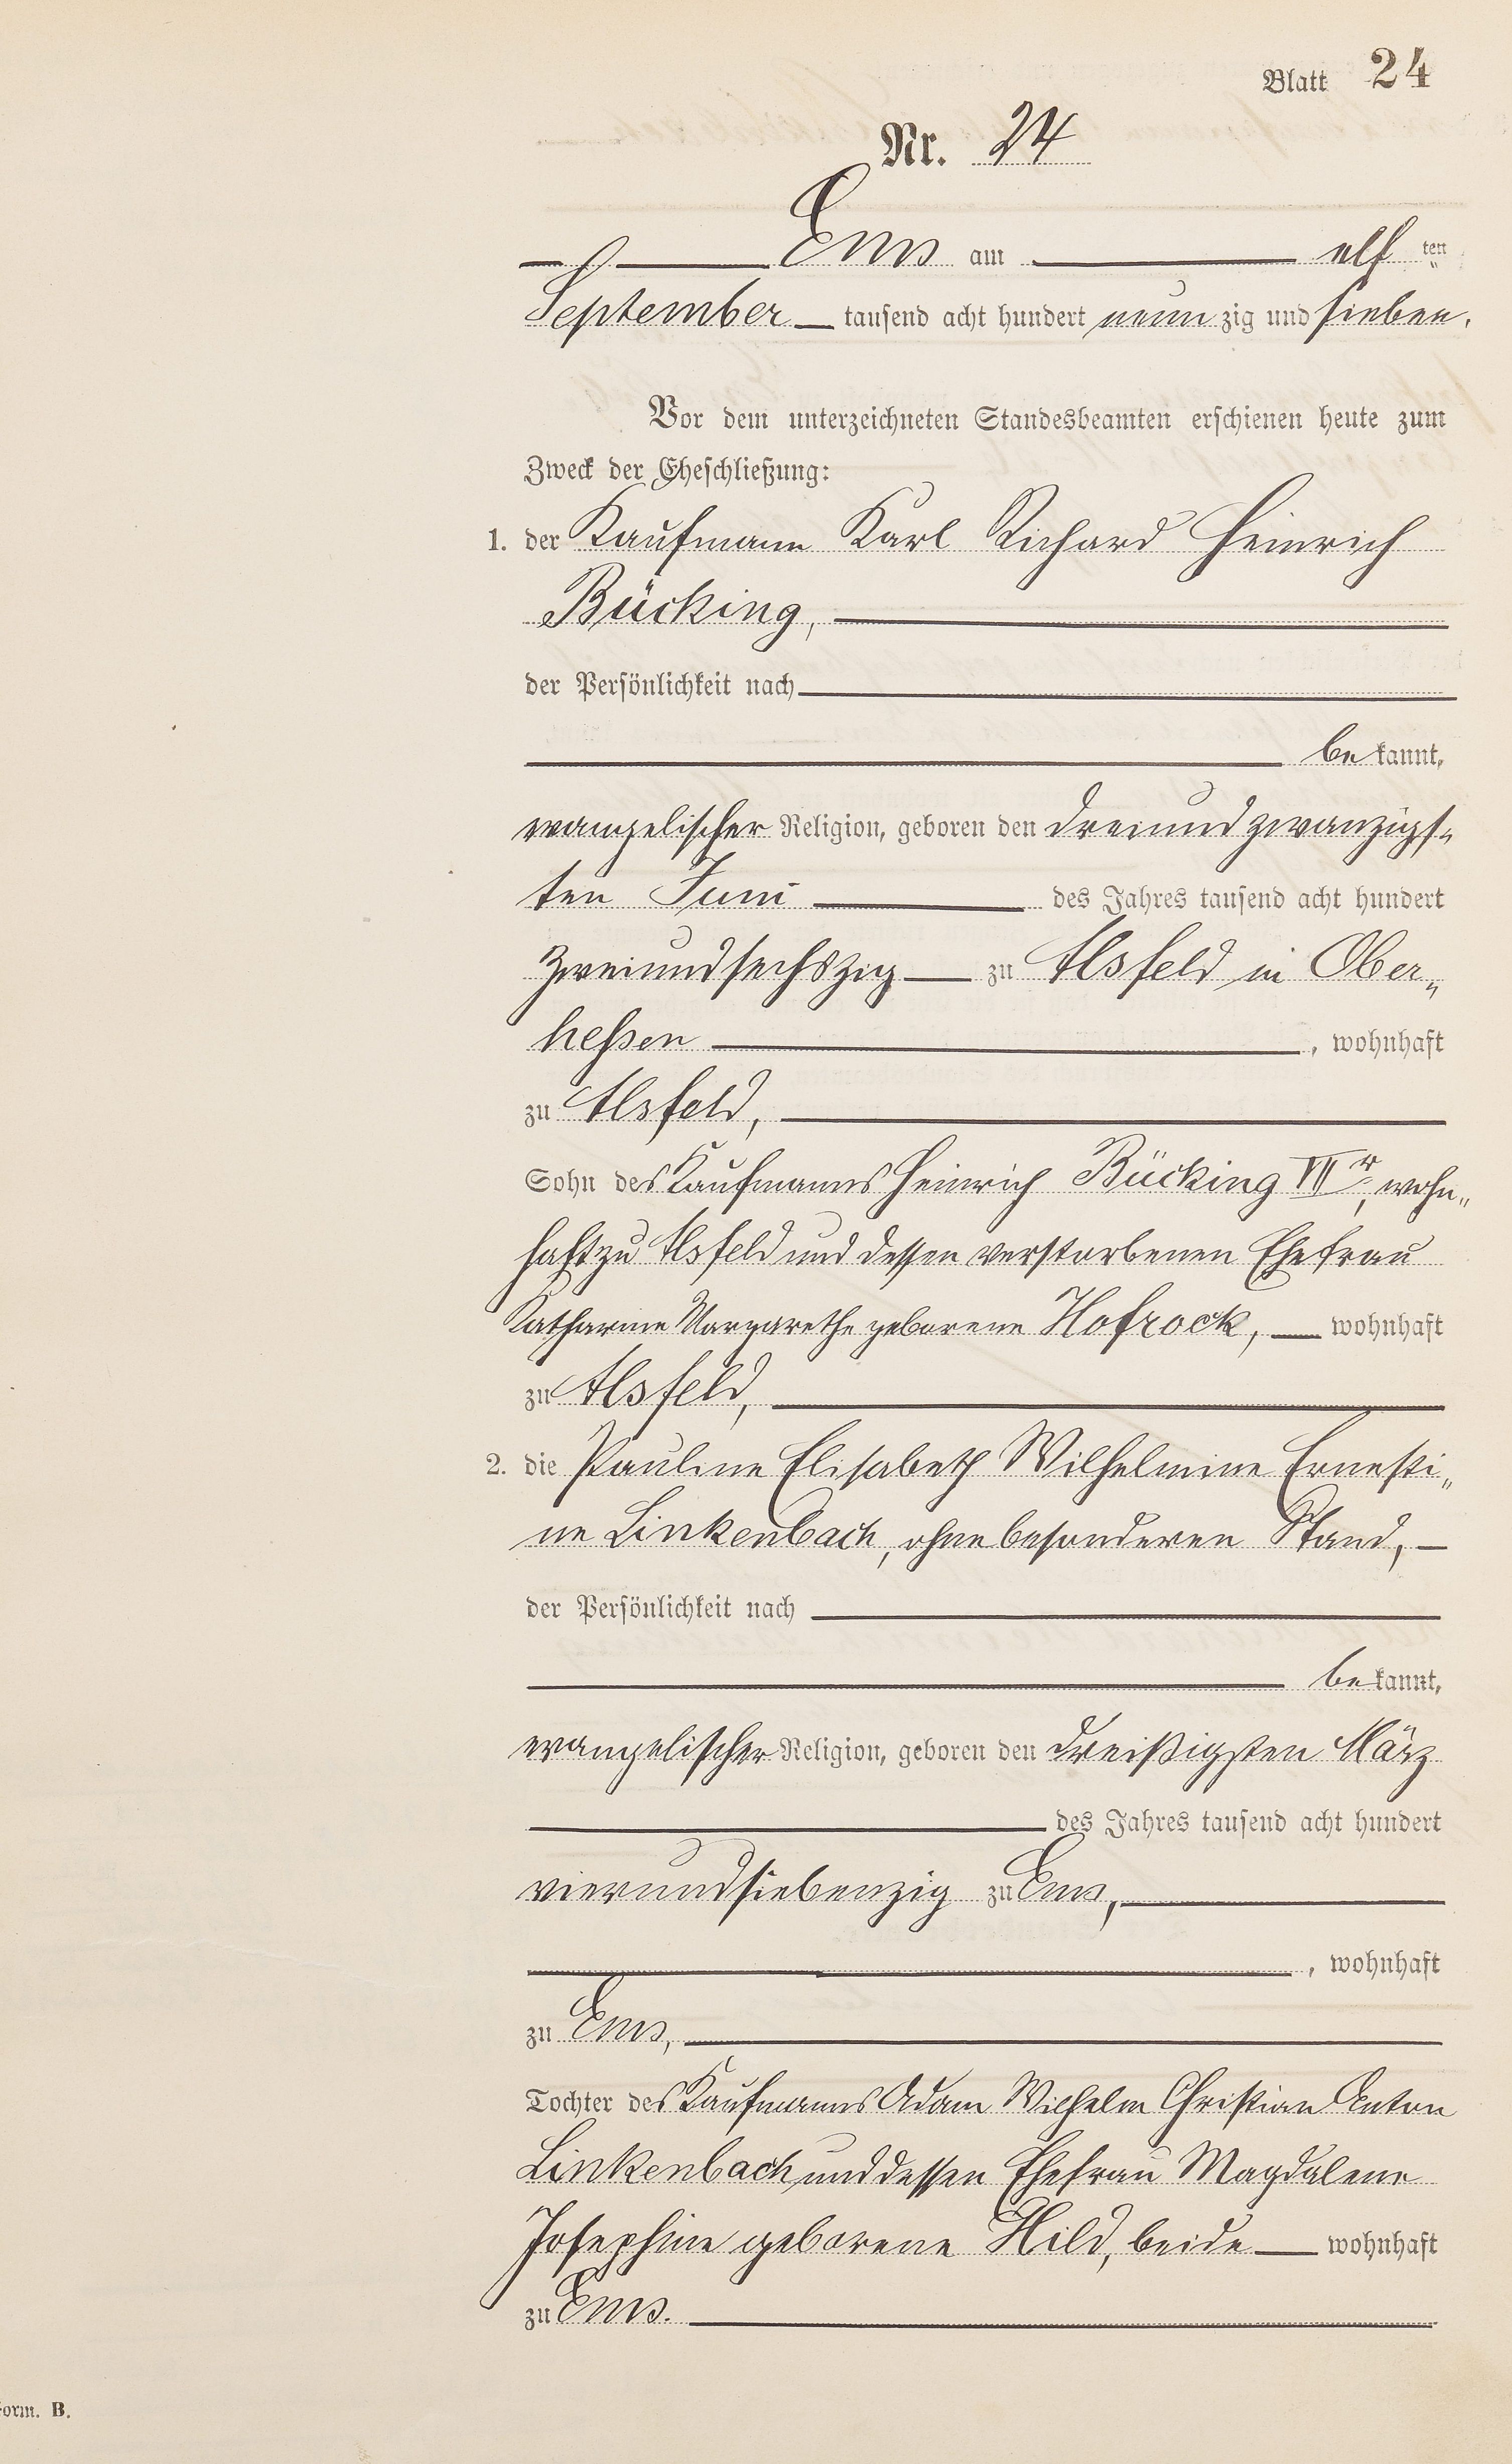 Blatt 24
Nr. 24
Ems am elf ten
September tausend acht hundert neun zig und sieben.
Vor dem unterzeichneten Standesbeamten erschienen heute zum
Zweck der Eheschließung:
1. der Kaufmann Karl Richard Heinrich
Bücking,
der Persönlichkeit nach
be kannt,
evangelischer Religion, geboren den dreiundzwanzigs-
ten Juni des Jahres tausend acht hundert
zweiundsechszig zu Alsfeld in Ober-
heßen, wohnhaft
zu Alsfeld,
Sohn des Kaufmanns Heinrich Bücking VIIr, wohn-
haft zu Alsfeld und dessen verstorbenen Ehefrau
Katharine Margarethe geborene Hofrock, wohnhaft
zu Alsfeld,
2. die Pauline Elisabeth Wilhelmine Ernesti-
ne Linkenbach, ohne besonderen Stand,
der Persönlichkeit nach
be kannt,
evangelischer Religion, geboren den dreißigsten März
des Jahres tausend acht hundert
vierundsiebenzig zu Ems,
, wohnhaft
zu Ems,
Tochter des Kaufmanns Adam Wilhelm Christian Anton
Linkenbach und dessen Ehefrau Magdalene
Josephine geborene Hild, beide wohnhaft
zu Ems.
Form. B.